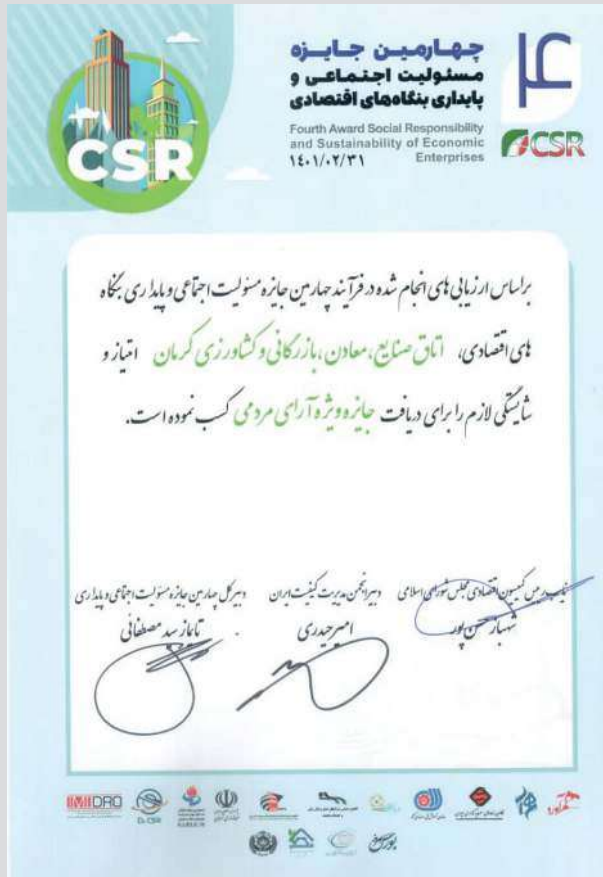 چهارمین جایزه
مسئولیت اجتماعی و
پایداری بنگاه‌های اقتصادی
Fourth Award Social Responsibility
and Sustainability of Economic
Enterprises
۱۴۰۱/۰۲/۳۱
۴
CSR
CSR
براساس ارزیابی های انجام شده در فرآیند چهارمین جایزه مسئولیت اجتماعی و پایداری بنگاه
های اقتصادی، اتاق صنایع، معادن، بازرگانی و کشاورزی کرمان امتیاز و
شایستگی لازم را برای دریافت جایزه ویژه آرای مردمی کسب نموده است.
نایب رییس کمیسیون اقتصادی مجلس شورای اسلامی
شهباز حسن پور
دبیر انجمن مدیریت کیفیت ایران
امیر حیدری
دبیر کل چهارمین جایزه مسئولیت اجتماعی و پایداری
تایماز سید مصطفائی
IMIDRO
Dr.CSR
بورس